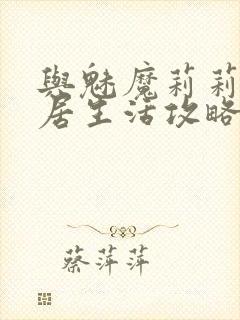 與魅魔莉莉
居生活攻略
蔡萍萍